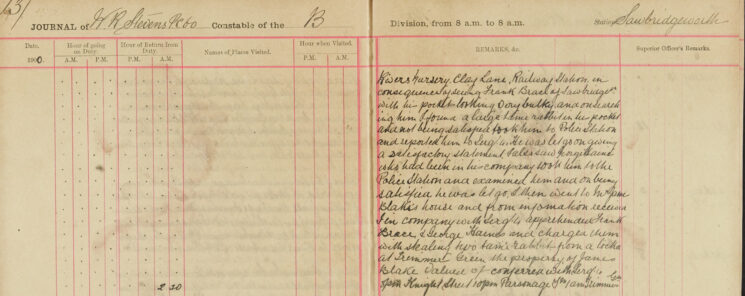 JOURNAL of W R Stevens Constable of the B Division, from 8 a.m. to 8 a.m. Station Sawbridgeworth
Date. Hour of going on Duty. Hour of Return from Duty. Names of Places Visited. Hour when Visited. REMARKS, &c. Superior Officer's Remarks.
1900. A.M. P.M. A.M. P.M. P.M. A.M.
Rivers Nursery, Clay Lane, Railway Station, in
consequence of seeing Frank Brace of Sawbridge
with his pocket looking very bulky, and on search
ing him I found a large tame rabbit in his pocket
and not being satisfied took him to Police Station
and reported him to Serg. He was let go on giving
a satisfactory statement I also saw George Haines
who had been in his company took him to the
Police Station and examined him and on being
satisfied he was let go, I then went to Mr James
Blake's house and from information received
I in company with Serg apprehended Frank
Brace & George Haines and charged them
with stealing two tame rabbits from a
at Trimmers Green the property of James
Blake Value of conferred with Serg
9pm Knight Street 10pm Parsonage 1am
2 30